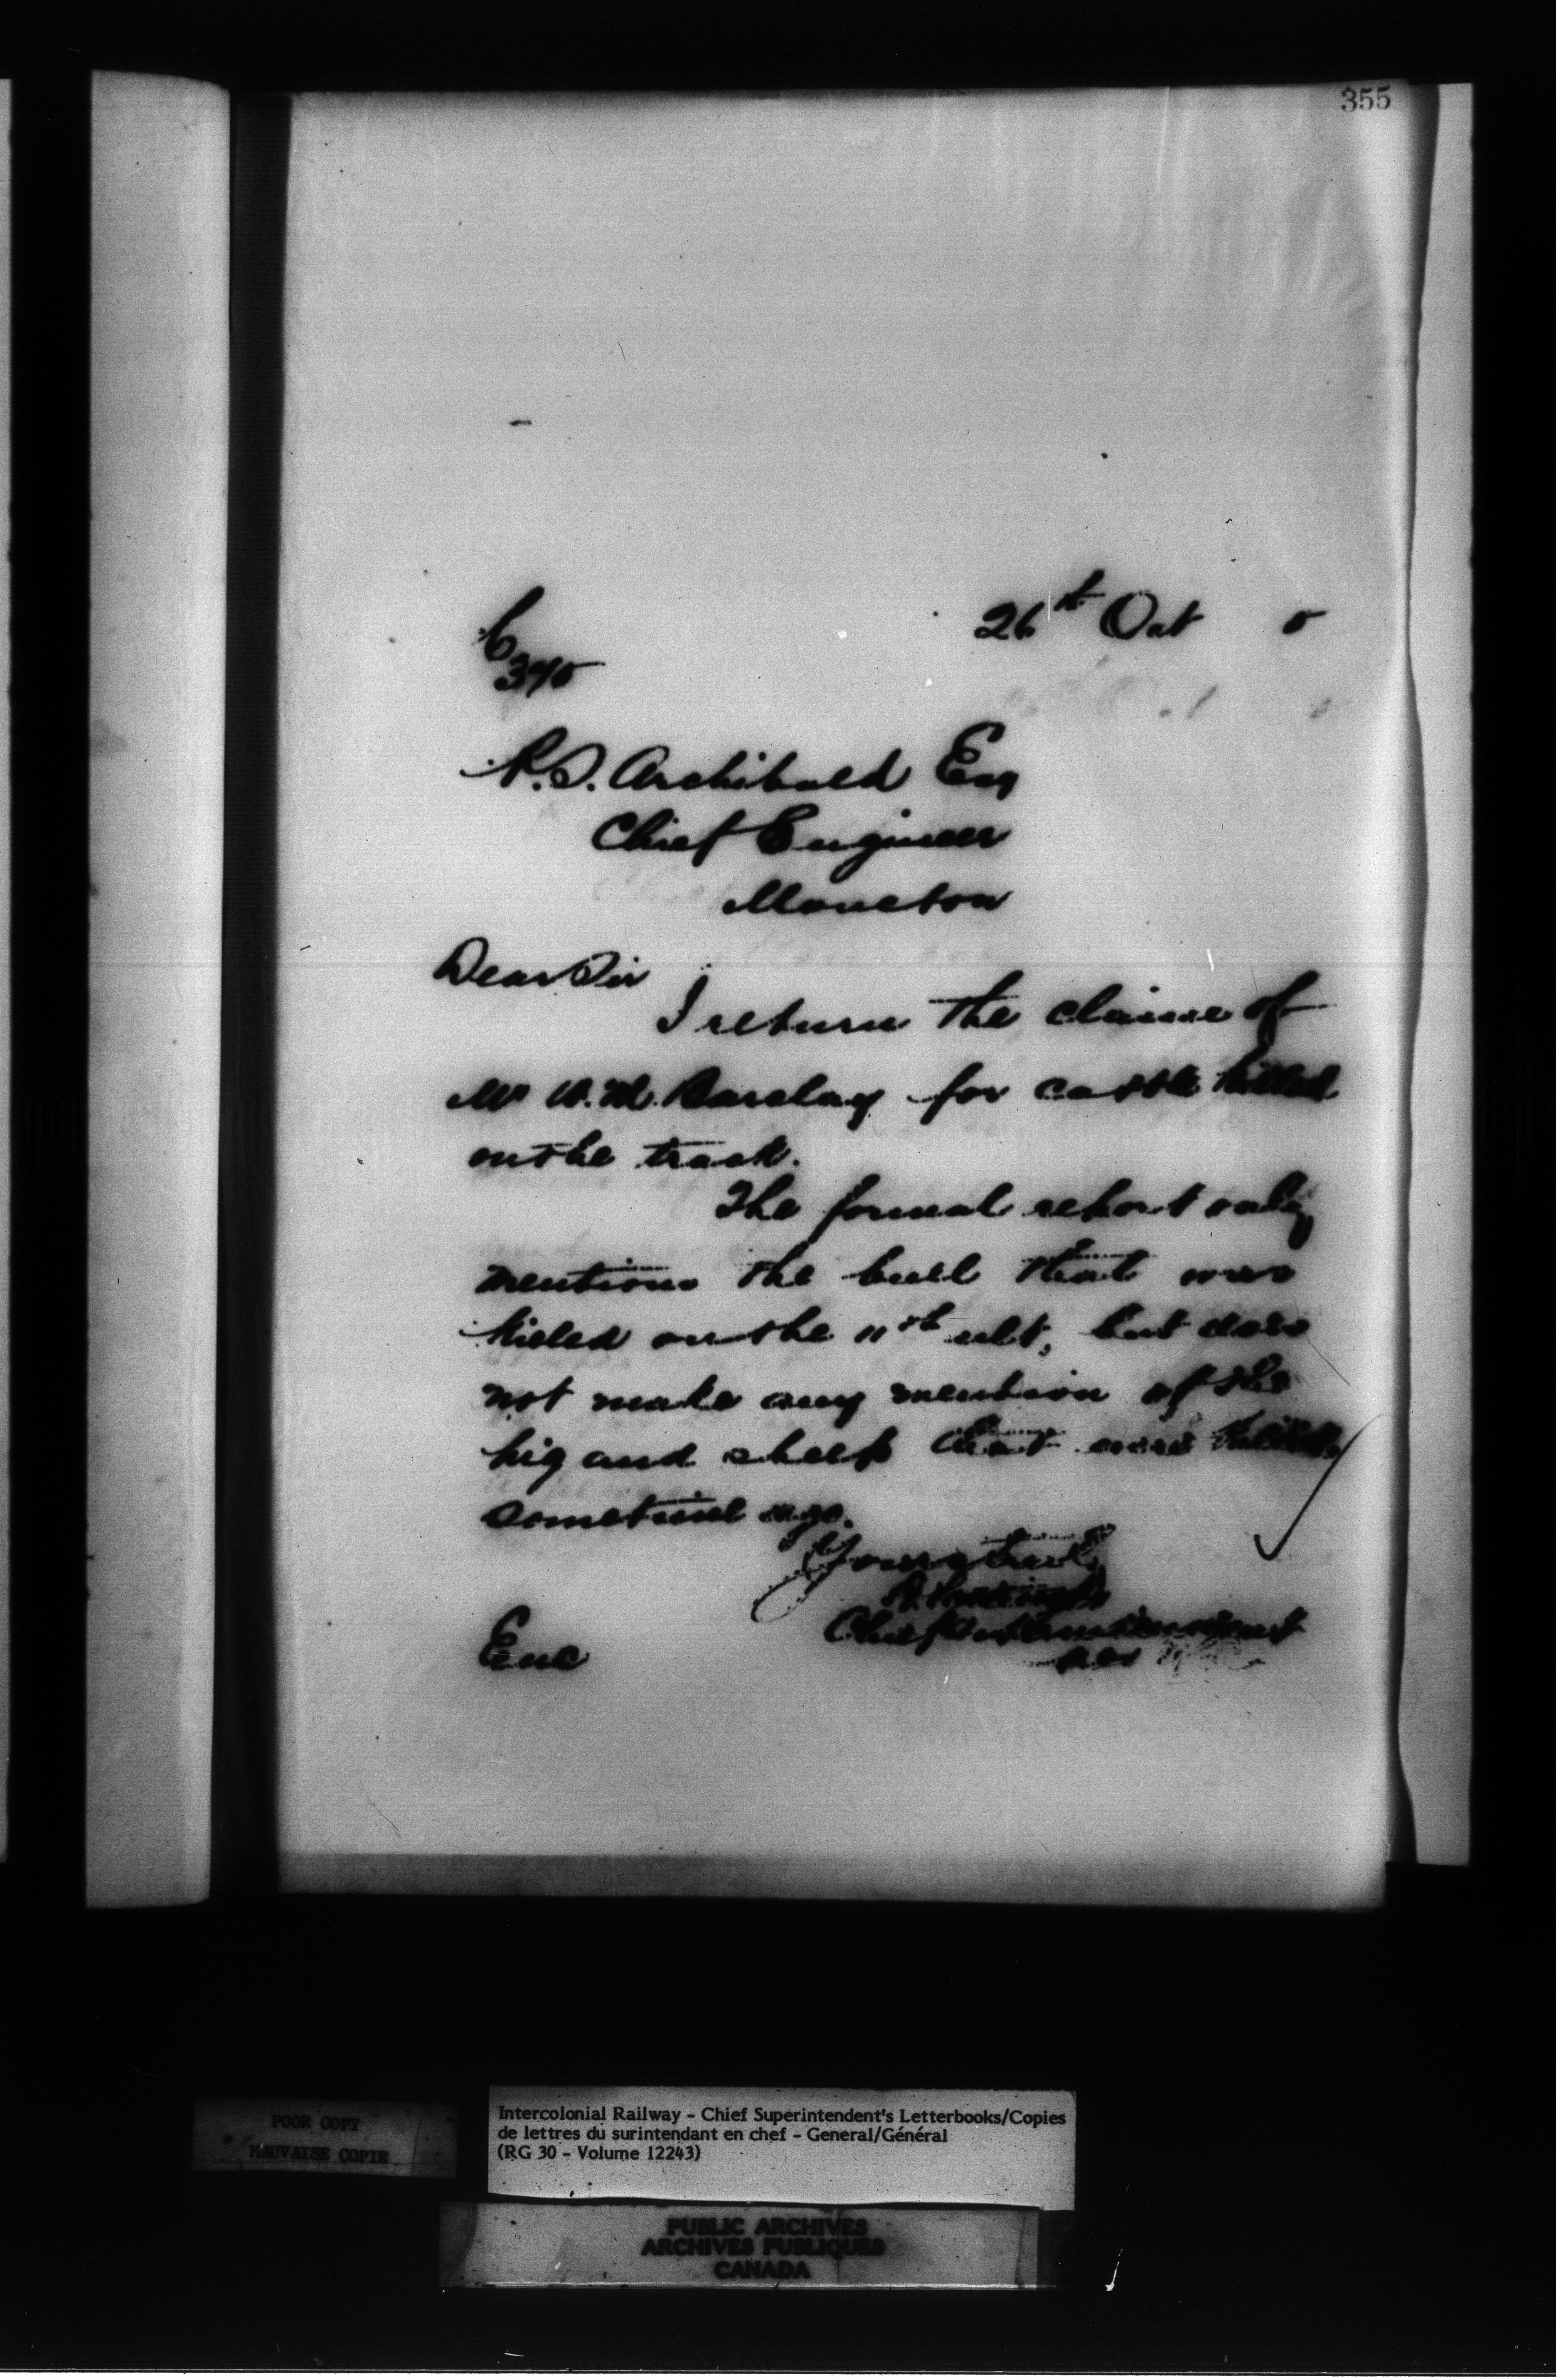 355
26th Oct 5
C
375
P.S. Archibald Esq
Chief Engineer
Moncton
Dear Sir
I return the claim of
Mr W.M. Barclay for cattle killed
on the track.
The formal report only
mentions the bull that was
killed on the 11th ult, but does
not make any mention of the
pig and sheep that were killed
sometime ago.
Yours truly
Chief Superintendent
per
Enc
POOR COPY
MAUVAISE COPIE
Intercolonial Railway - Chief Superintendent's Letterbooks/Copies
de lettres du surintendant en chef - General/Général
(RG 30 - Volume 12243)
PUBLIC ARCHIVES
ARCHIVES PUBLIQUES
CANADA